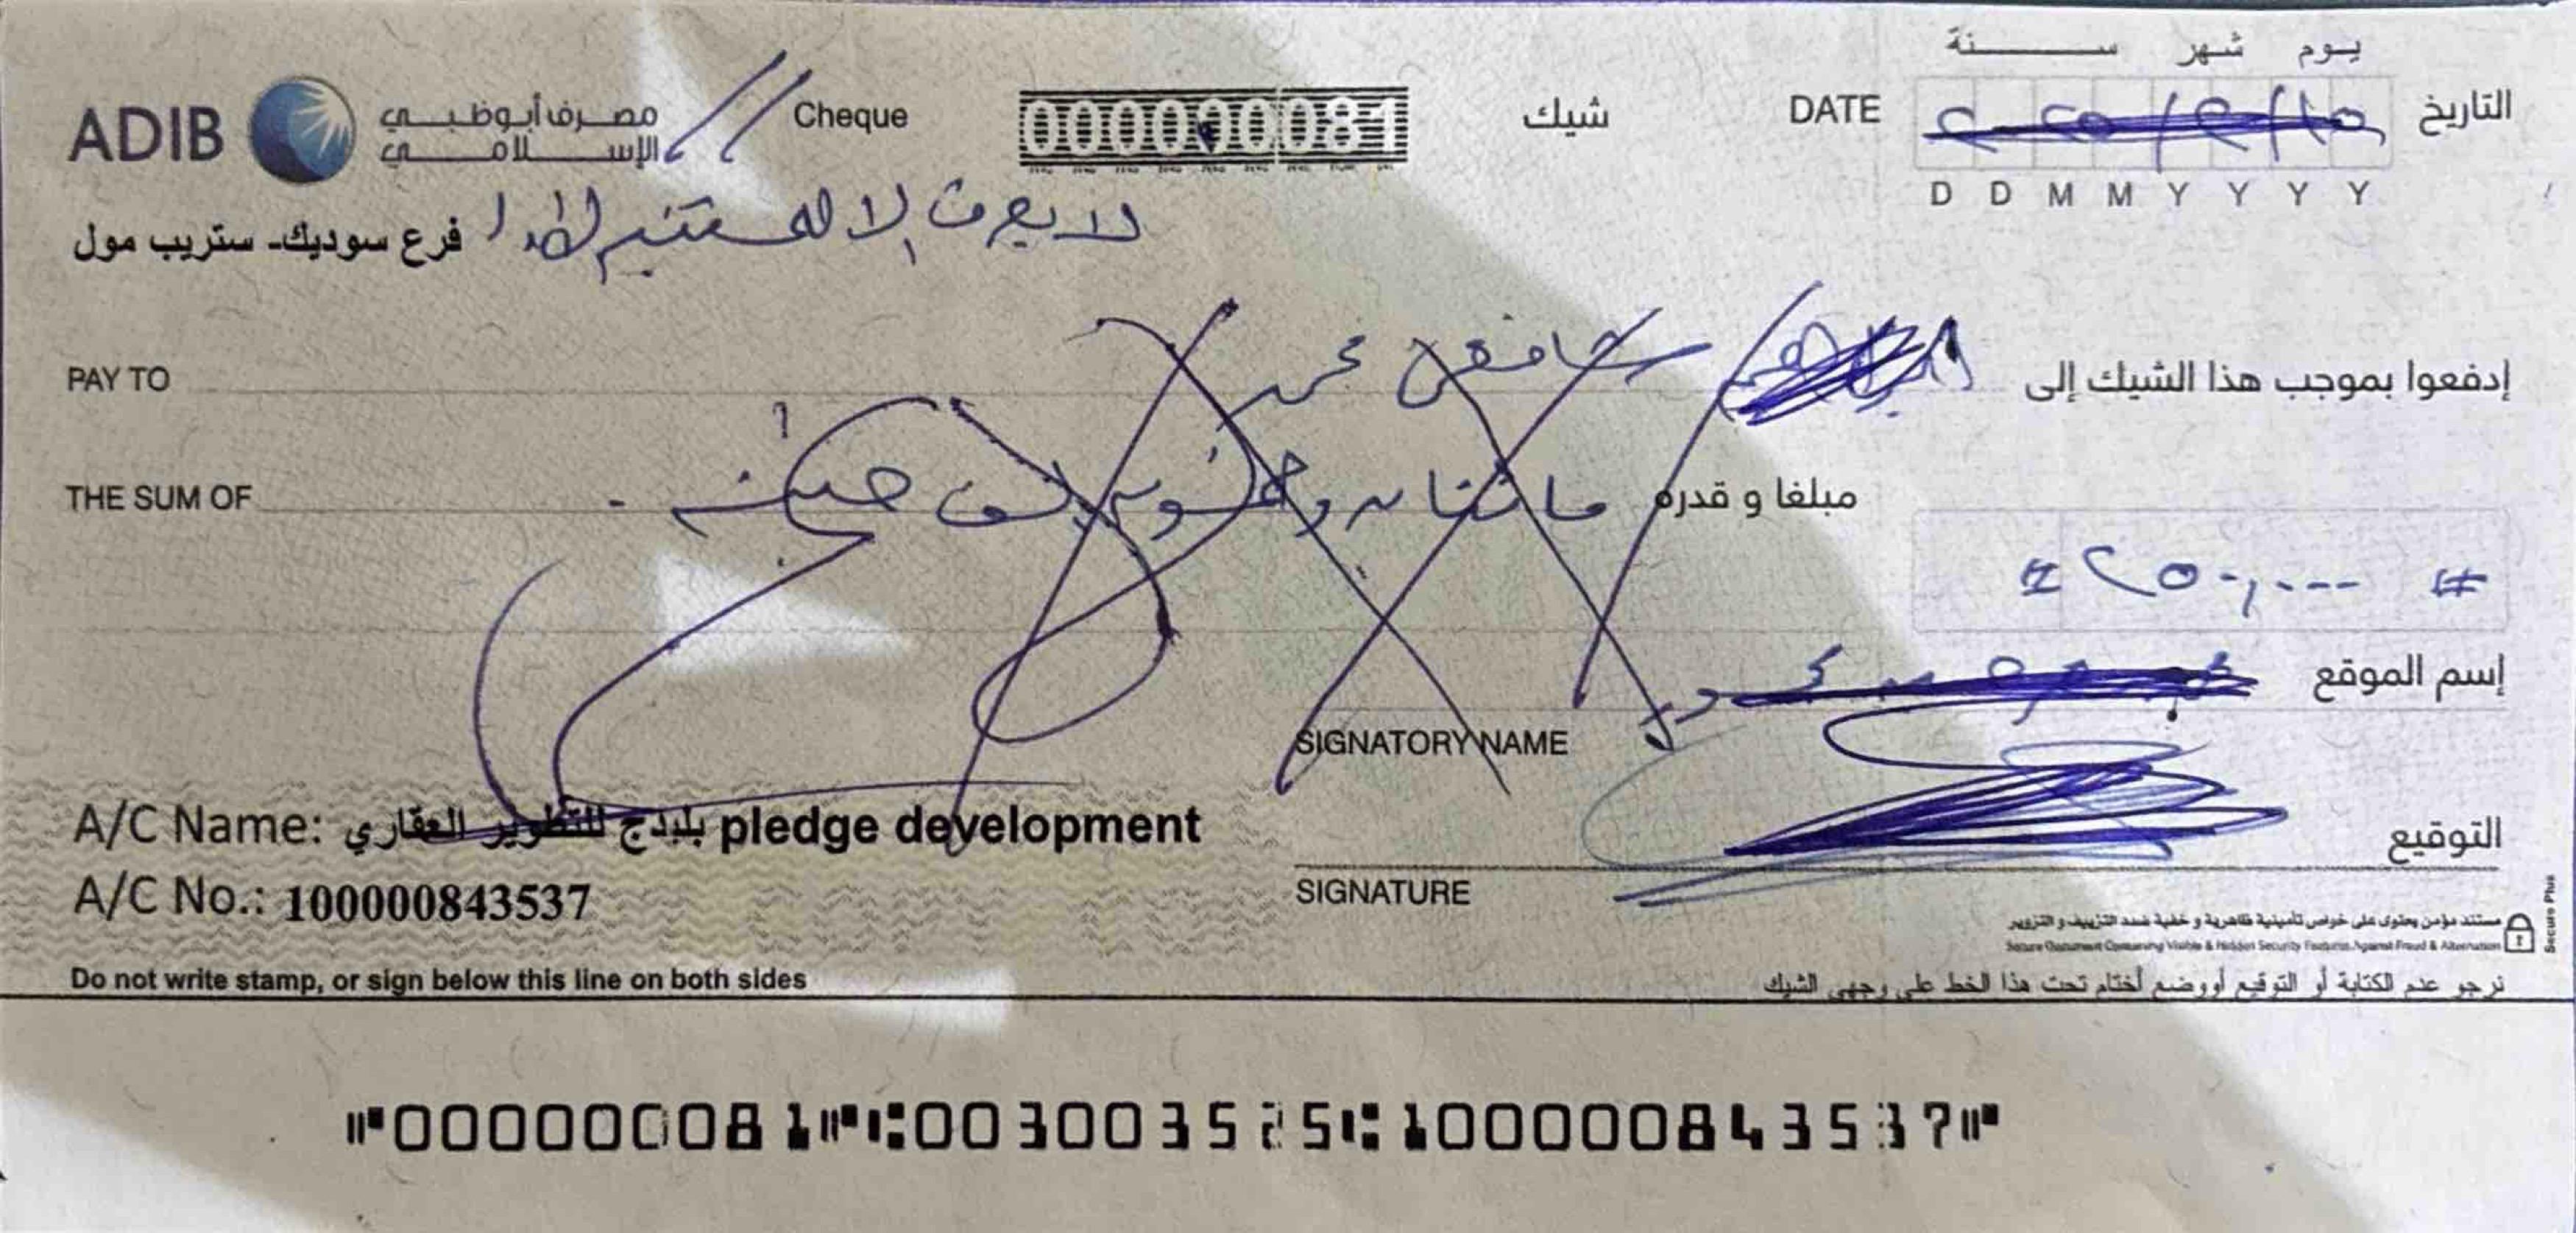 يوم شهر سنة
ADIB مصرف أبوظبي الإسلامي Cheque 000000081 شيك DATE التاريخ
D D M M Y Y Y Y
فرع سوديك- ستريب مول
لا يصرف إلا للمستفيد الأول
PAY TO شافعى محمد إدفعوا بموجب هذا الشيك إلى
THE SUM OF مبلغا و قدره مائتان وخمسون ألف جنيه
# ٢٥٠,٠٠٠ #
إسم الموقع
SIGNATORY NAME
A/C Name: بليدج للتطوير العقاري pledge development
التوقيع
A/C No.: 100000843537
SIGNATURE
مستند مؤمن يحتوى على خواص تأمينية ظاهرية و خفية ضد التزييف و التزوير
Secure Document Containing Visible & Hidden Security Features Against Fraud & Alteration
Secure Plus
Do not write stamp, or sign below this line on both sides
نرجو عدم الكتابة أو التوقيع أو وضع أختام تحت هذا الخط على وجهى الشيك
⑈000000081⑈⑆003003525⑆100000843537⑈